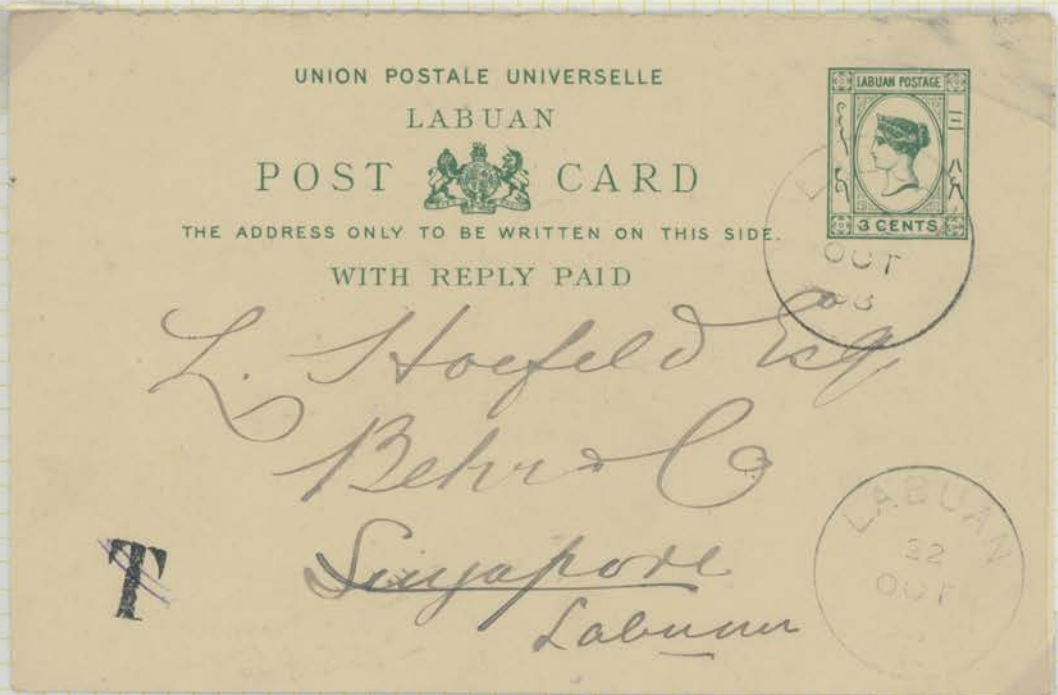 UNION POSTALE UNIVERSELLE
LABUAN
POST CARD
THE ADDRESS ONLY TO BE WRITTEN ON THIS SIDE.
WITH REPLY PAID
LABUAN POSTAGE
三
八
3 CENTS
OCT
L. Hoefeld Esq
Behr & Co
Singapore
Labuan
T
LABUAN
22
OCT